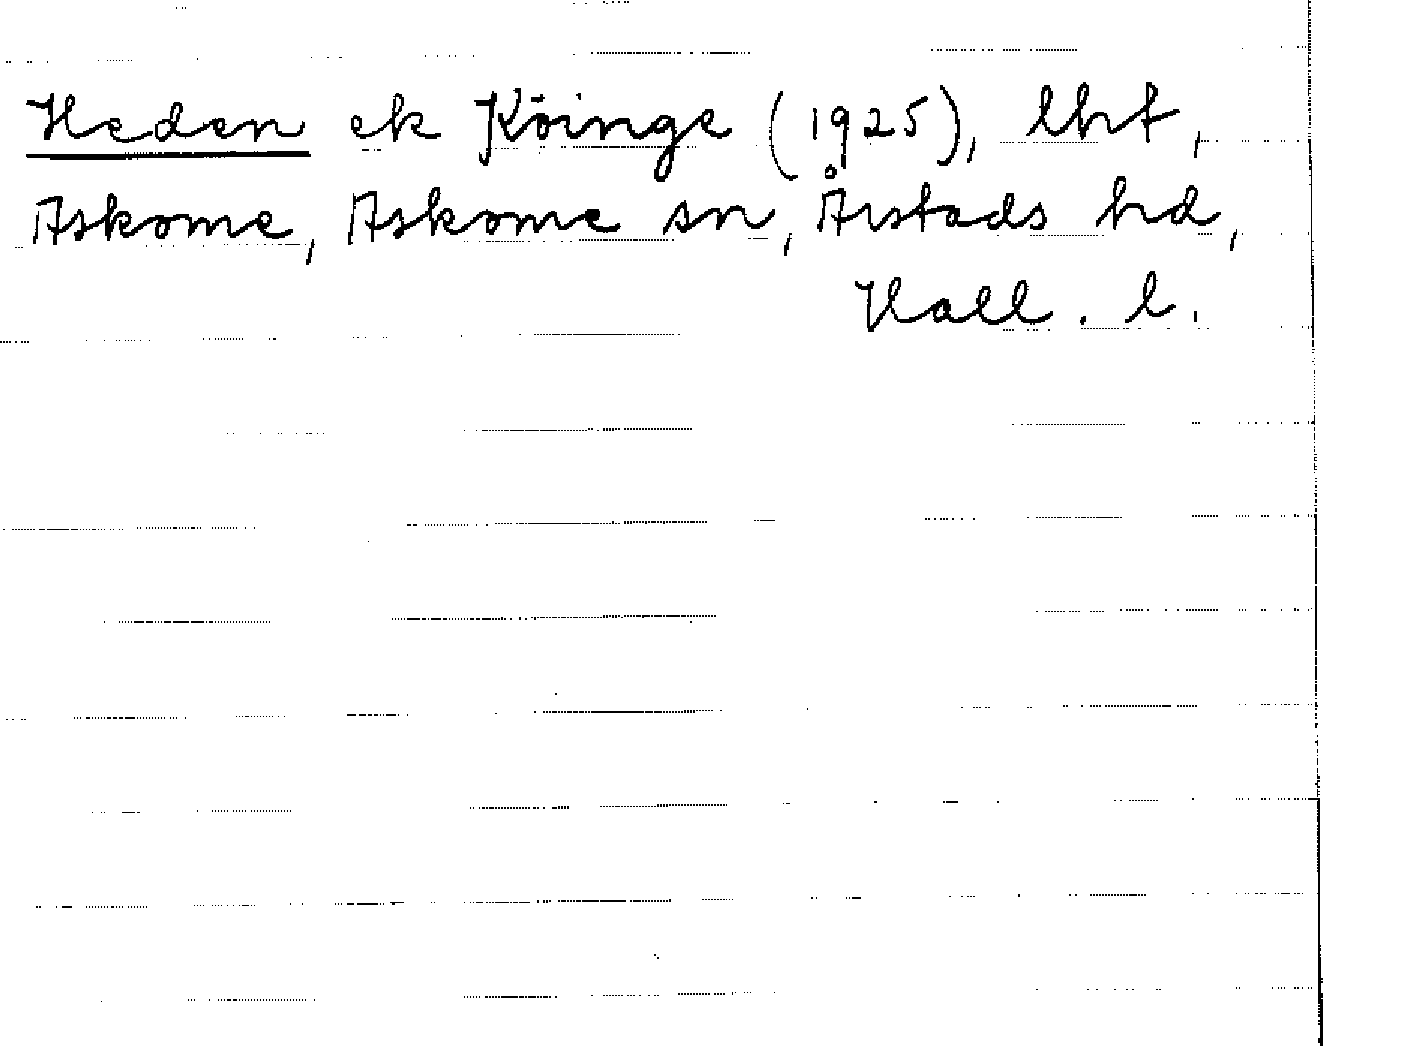 Heden ek Köinge (1925), lht,
Askome, Askome sn, Årstads hd,
Hall. l.